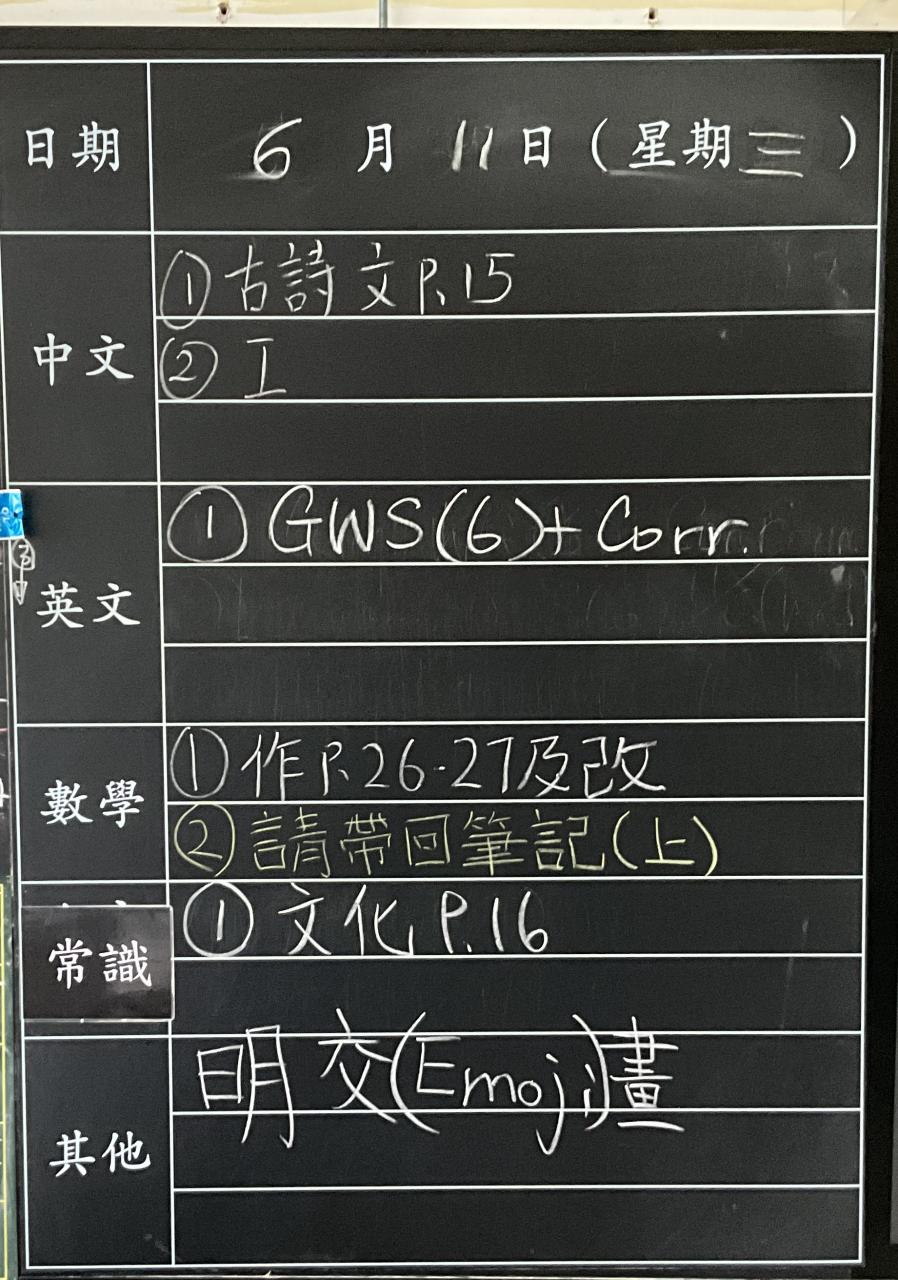 日期 6 月 11 日 ( 星期 三 )
中文
① 古詩文 P.15
② 工
英文
① GWS(6)+ Corr.
數學
① 作 P.26-27及改
② 請帶回筆記(上)
常識
① 文化 P.16
其他
明交(Emoji)畫